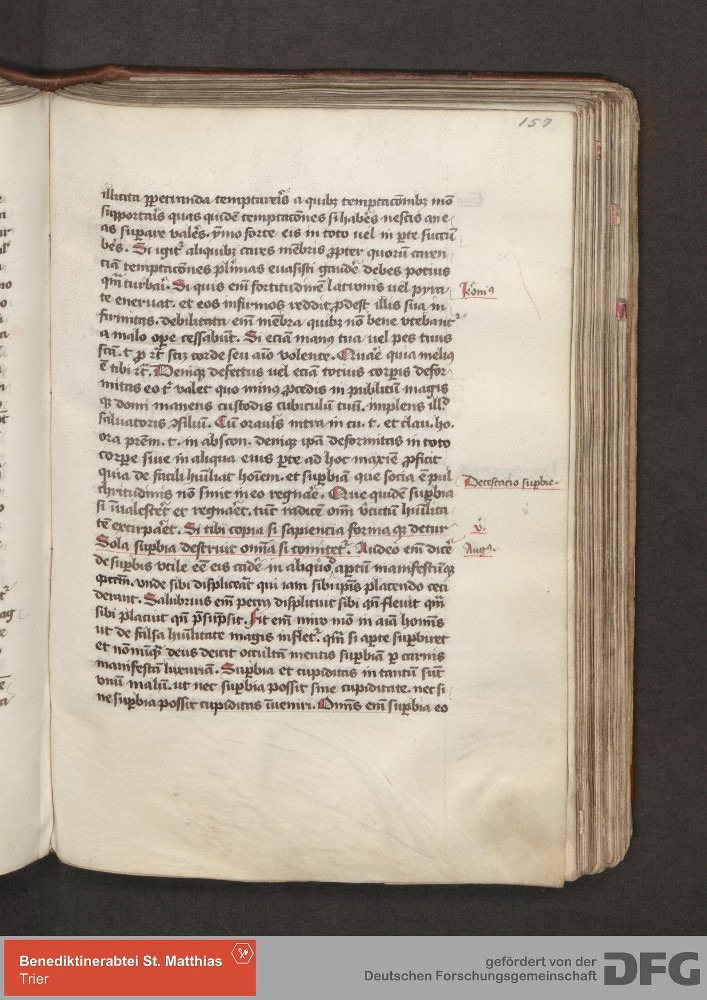 157
illicita ꝑpetranda temptareris a quibꝫ temptacōnibꝫ mō
supportaris quas quidē temptacōnes si habēs nescis an e
as suꝑare valēs. ymo forte eis in toto uel in ꝑte succū
bēs. Si igit᷑ aliquibꝫ cares mēbris ꝓpter quorū caren
ciam temptacōnes pl'imas euasisti gaudē debes potius
qm̄ turbari. Si quis em̄ fortitudinē latronis uel pyra
te eneruat. et eos infirmos reddit ꝓdest illis sua in
Iẽronimꝰ
firmitas. debilitata em̄ mēbra quibꝫ nō bene vtebant᷑
a malo oꝑe cessabūt. Si eciā manꝰ tua uel pes tuus
scā. t. ꝓ rt̄. sciꝫ corde seu aīo volente. Quare quia meliꝰ
ē tibi rt̄. Denique defectus uel eciam totius corꝑis defor
mitas eo t᷑ valet quo minꝰ ꝓcedis in publicū magis
qꝫ domi manens custodis cubiculū tuū. implens illd̄
saluatoris ꝯsiliū. Cū oraūis intra in cu. t. et clau. ho.
ora prēm. t. in abscon. denique ipā deformitas in toto
corꝑe siue in aliqua eius ꝑte ad hoc maxiē ꝓficit
quia de facili hūiliat hoīem. et suꝑbiā que socia ē pul
chritudinis nō sinit in eo regnare. Que quidē suꝑbia
Detestacio suꝑbie.
si īualesc̄et et regnar̄et. tūc radicē om̄ v̄tutū hūilita
tē extirpar̄et. Si tibi copia si sapiencia formaqꝫ detur
v̄.
Sola suꝑbia destruit om̄ia si comitet᷑. Audeo em̄ dicē
Augꝰ.
de suꝑbis vtile eē eis cadē in aliquod aꝑtū manifestūqꝫ
pctm̄. vnde sibi displiceāt qui iam sibiipīs placendo ceci
derant. Salubrius em̄ petrꝰ displicuit sibi qn̄ fleuit qm̄
sibi placuit qn̄ p̄sūpsit. Fit em̄ miro mō in aīa hoīnis
ut de falsa hūilitate magis inflet᷑. qm̄ si aꝑte suꝑbiret
et nōnūqꝫ deus deicit occultā mentis suꝑbiā ꝑ carnis
manifestā luxuriā. Suꝑbia et cupiditas in tantū sūt
vnū malū. ut nec suꝑbia possit sine cupiditate. nec si
ne suꝑbia possit cupiditas īueniri. Om̄is em̄ suꝑbia eo
Benediktinerabtei St. Matthias
Trier
gefördert von der
Deutschen Forschungsgemeinschaft
DFG